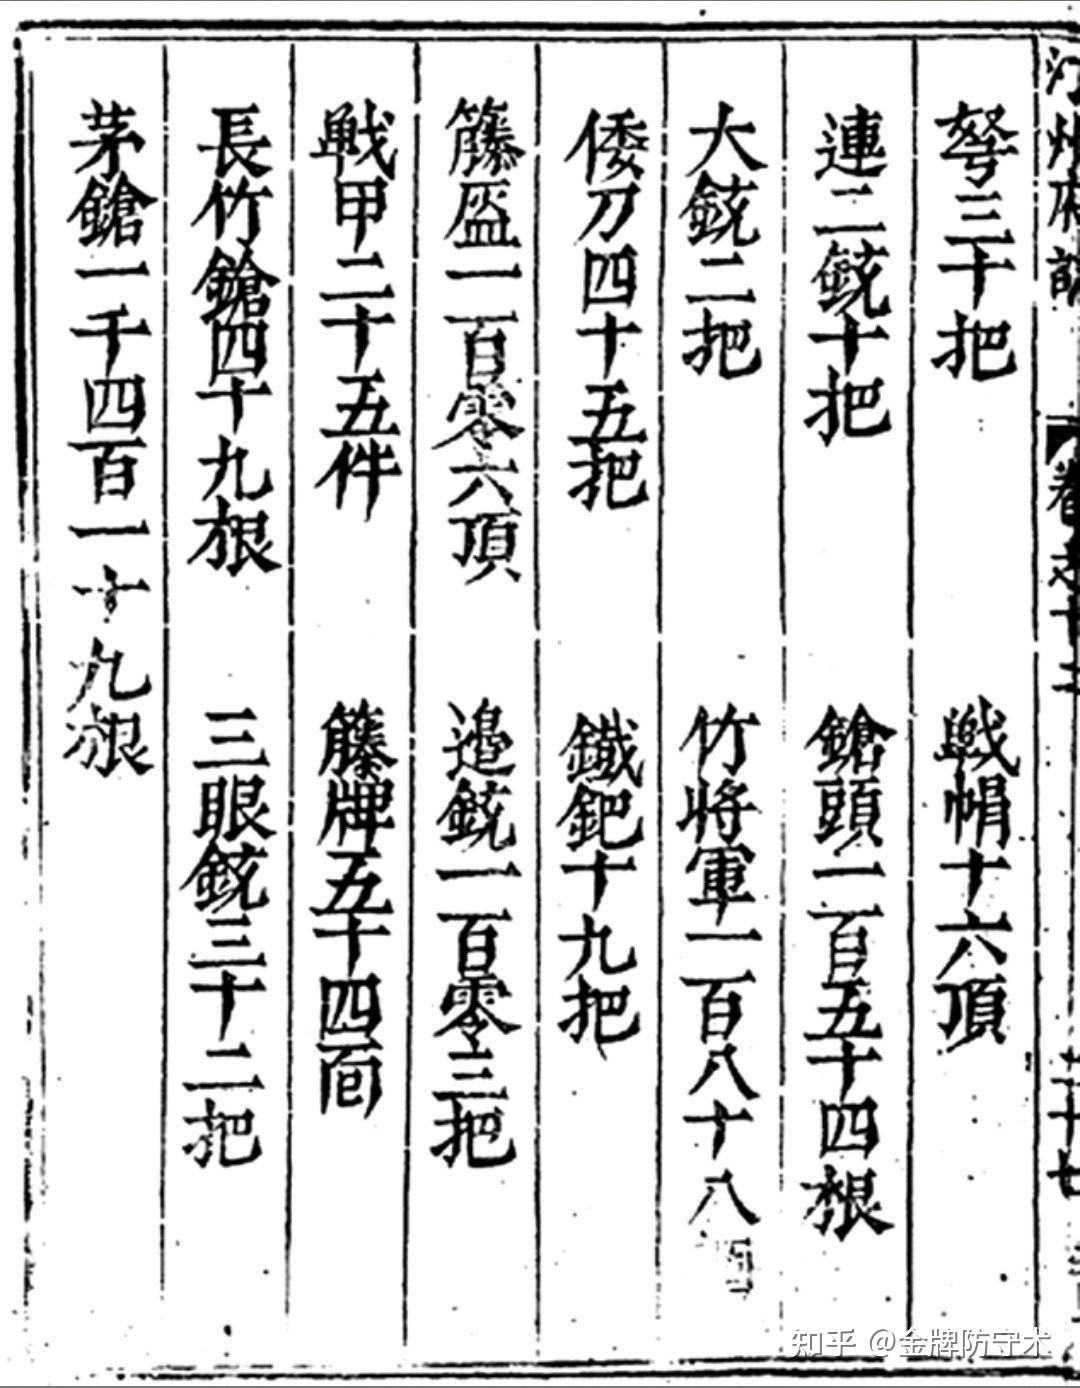 汀州府誌 卷之十二 二十七
弩三十把 戰帽十六頂
連二銃十把 鎗頭一百五十四根
大銃二把 竹將軍一百八十八
倭刀四十五把 鐵鈀十九把
籐盔一百零六頂 邉銃一百零三把
戰甲二十五件 籐牌五十四面
長竹鎗四十九根 三眼銃三十二把
茅鎗一千四百一十九根
知乎 @金牌防守术